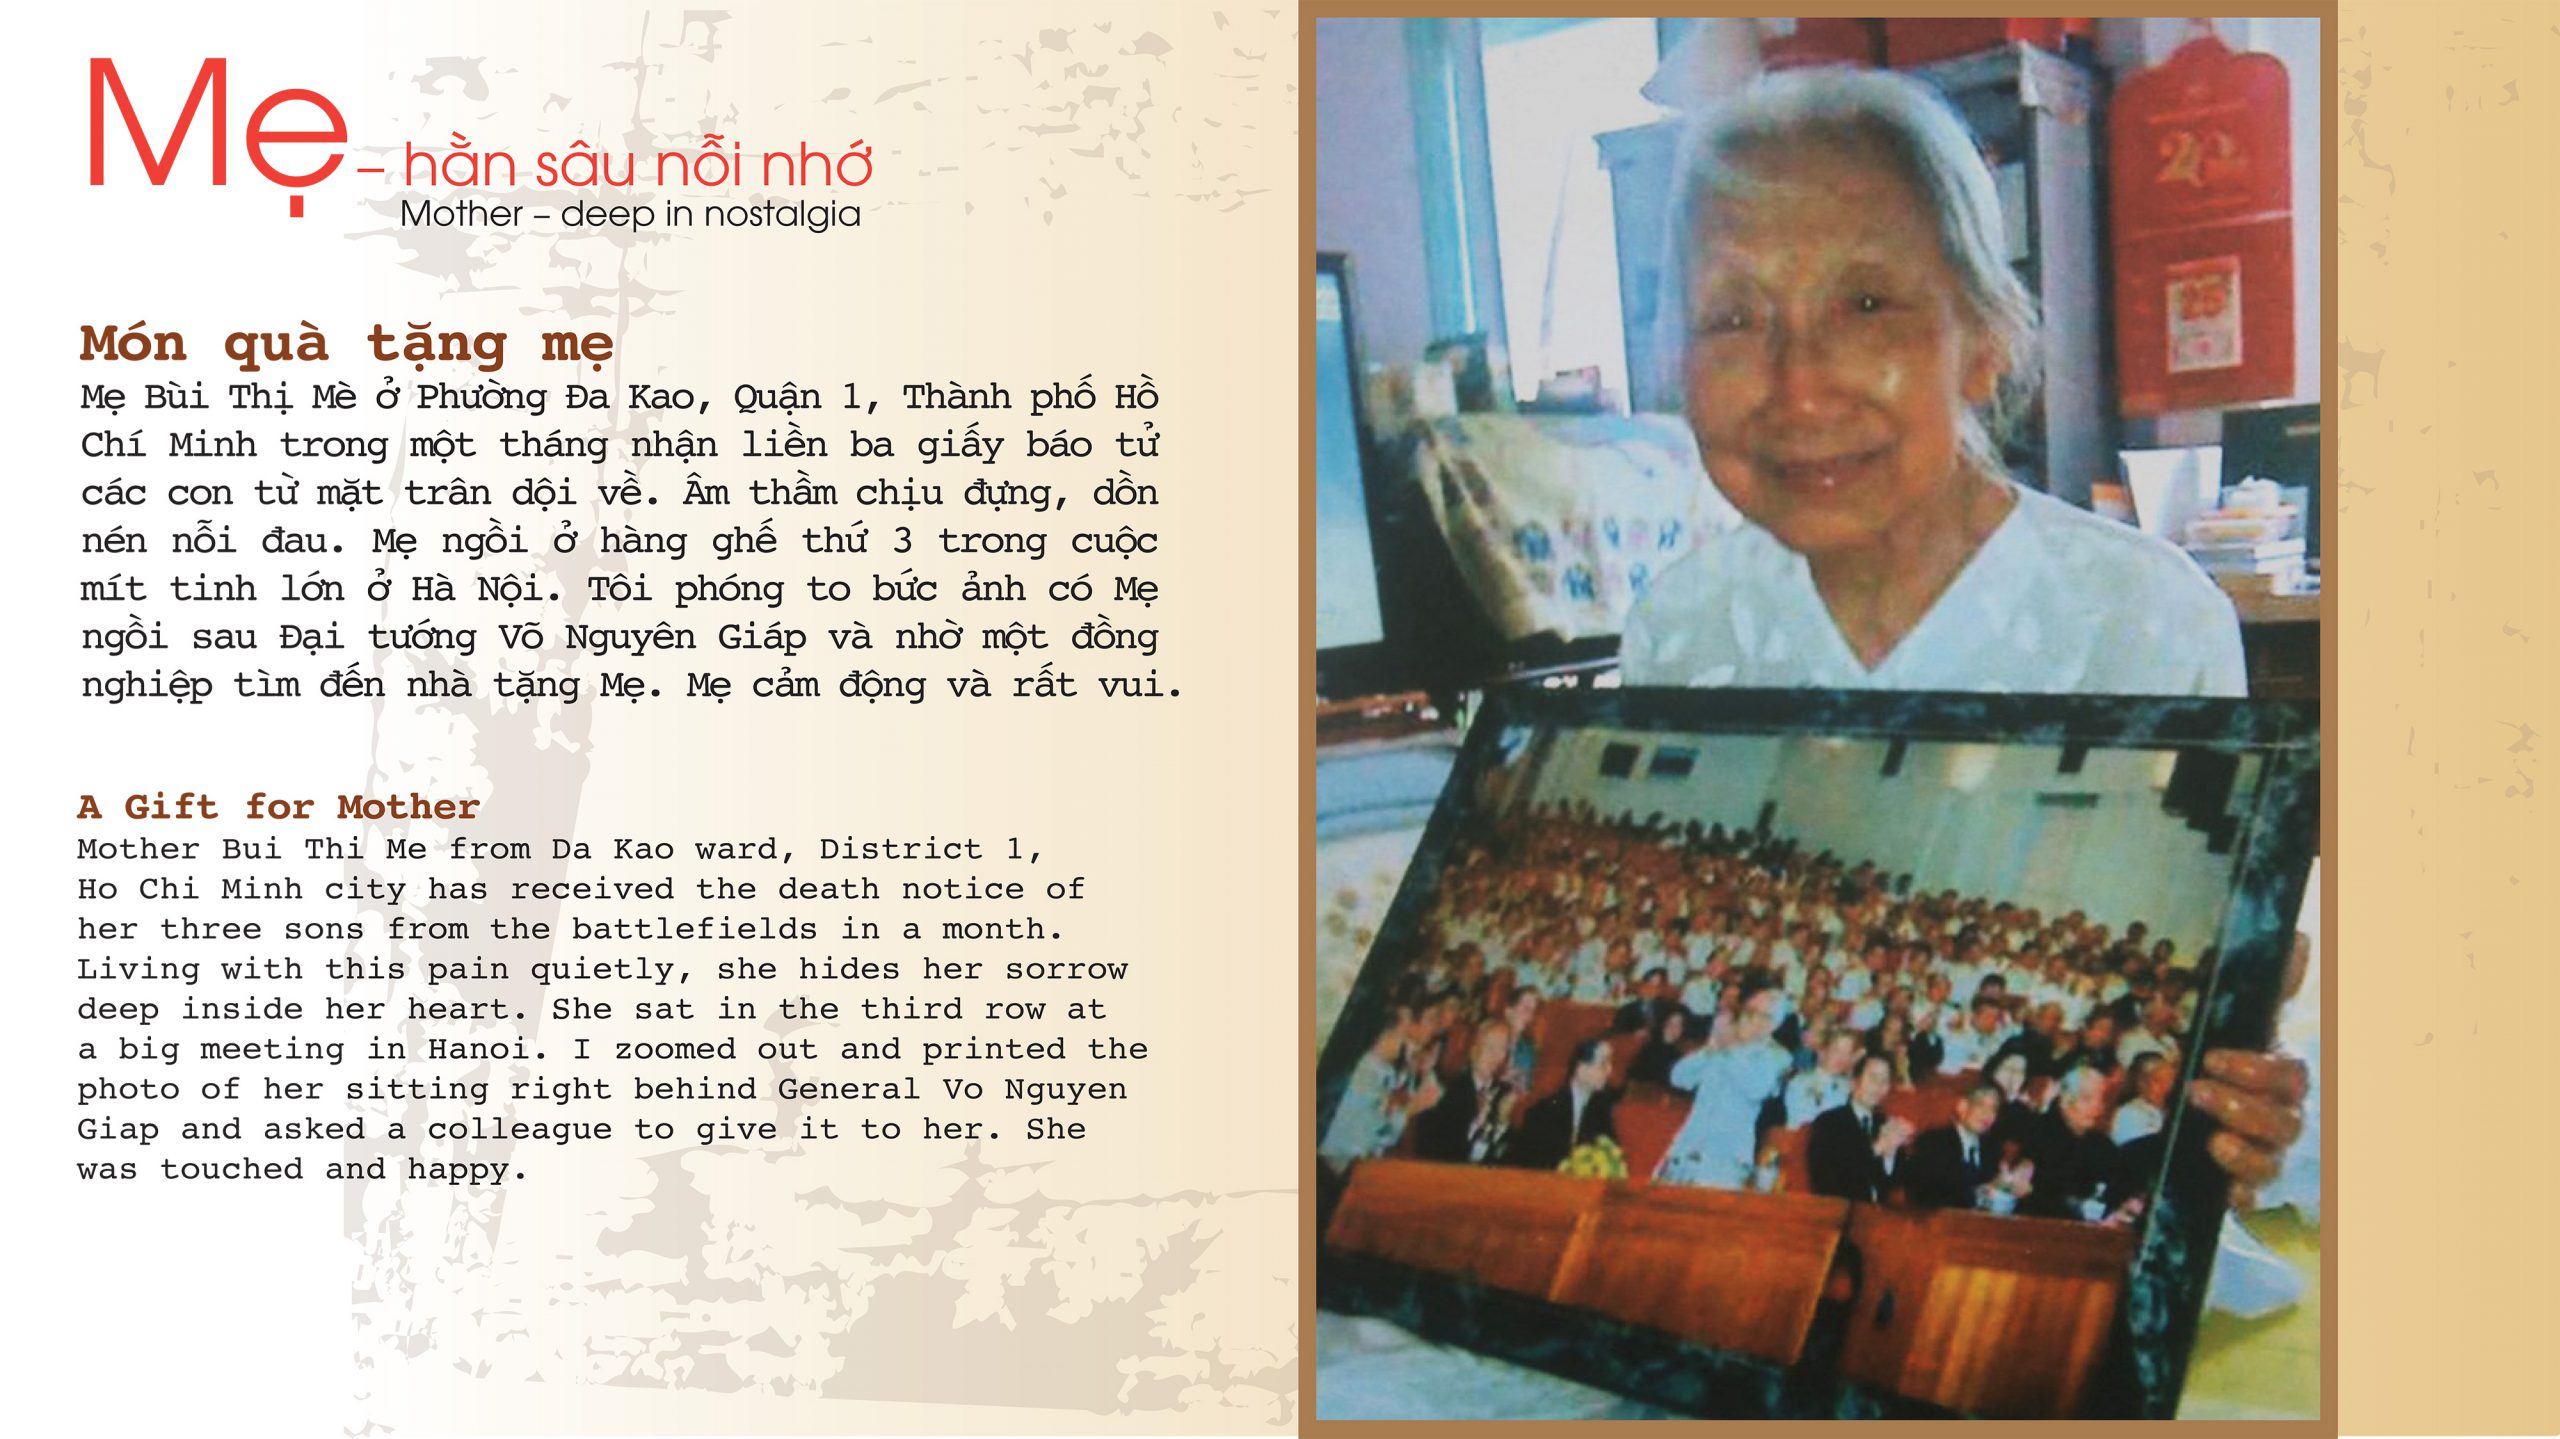 Mẹ – hằn sâu nỗi nhớ
Mother – deep in nostalgia
Món quà tặng mẹ
Mẹ Bùi Thị Mè ở Phường Đa Kao, Quận 1, Thành phố Hồ
Chí Minh trong một tháng nhận liền ba giấy báo tử
các con từ mặt trân dội về. Âm thầm chịu đựng, dồn
nén nỗi đau. Mẹ ngồi ở hàng ghế thứ 3 trong cuộc
mít tinh lớn ở Hà Nội. Tôi phóng to bức ảnh có Mẹ
ngồi sau Đại tướng Võ Nguyên Giáp và nhờ một đồng
nghiệp tìm đến nhà tặng Mẹ. Mẹ cảm động và rất vui.
A Gift for Mother
Mother Bui Thi Me from Da Kao ward, District 1,
Ho Chi Minh city has received the death notice of
her three sons from the battlefields in a month.
Living with this pain quietly, she hides her sorrow
deep inside her heart. She sat in the third row at
a big meeting in Hanoi. I zoomed out and printed the
photo of her sitting right behind General Vo Nguyen
Giap and asked a colleague to give it to her. She
was touched and happy.